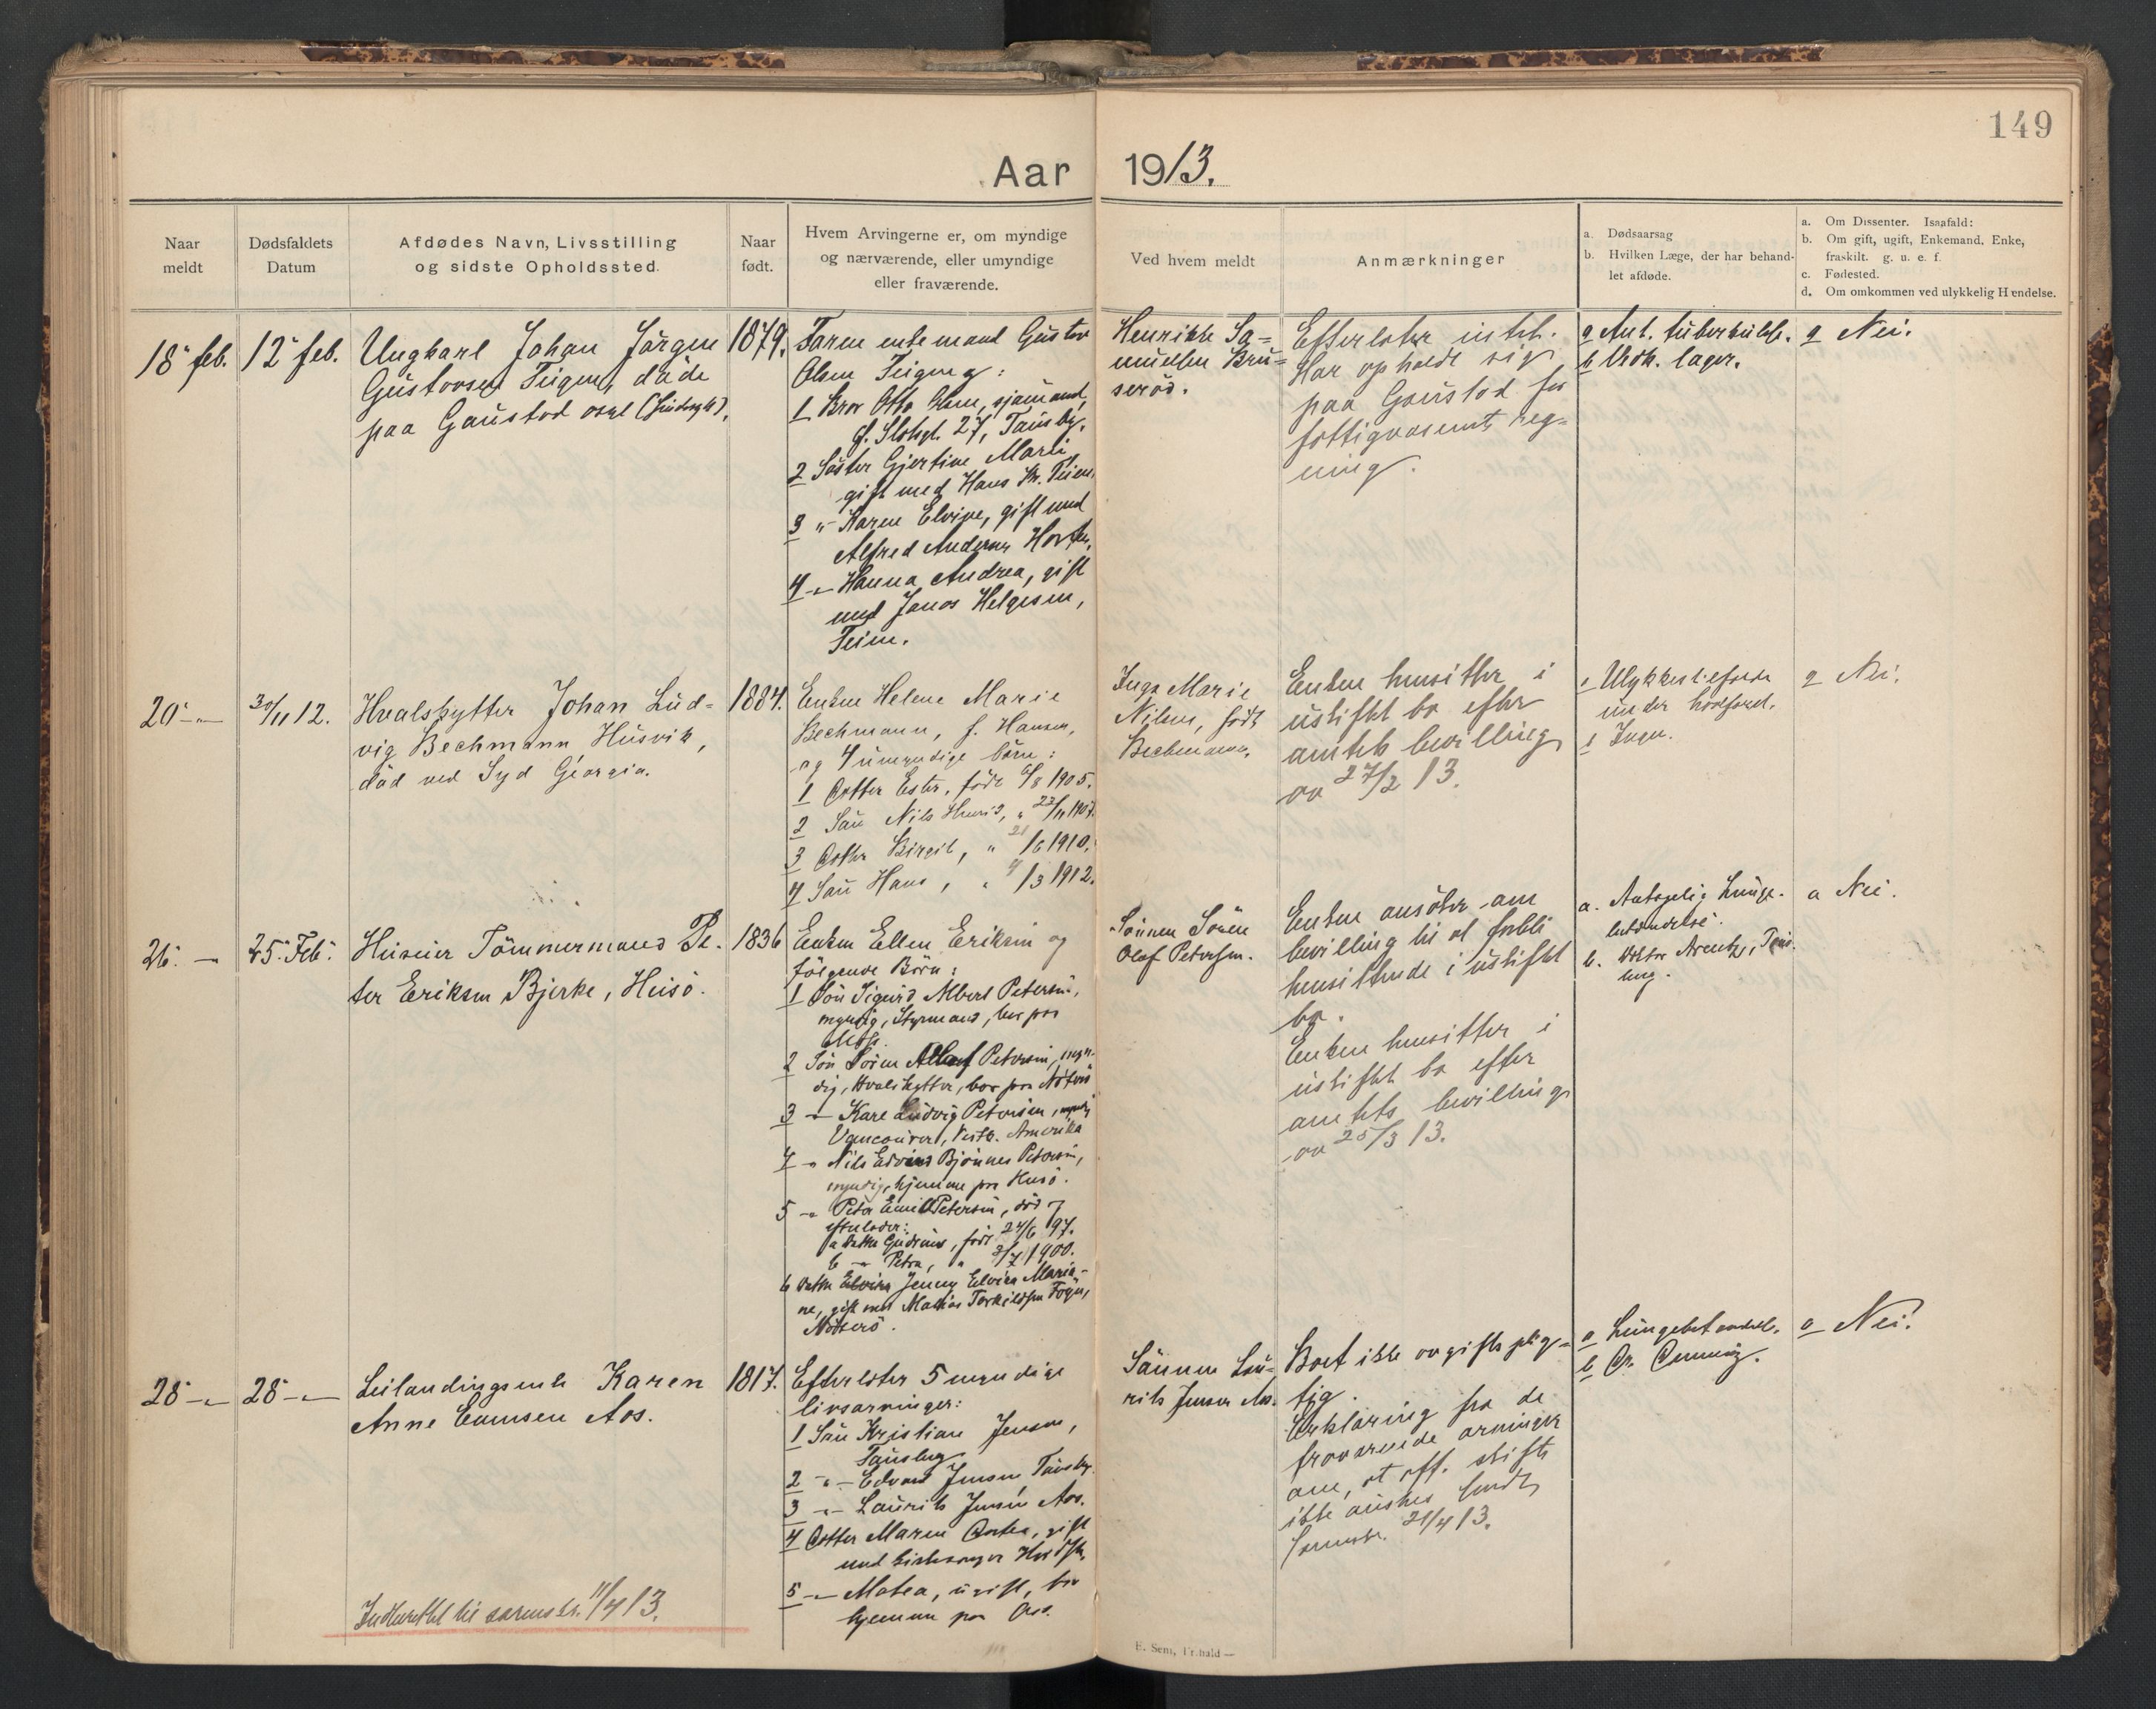 149
Aar 1913.
Naar
meldt
Dødsfaldets
Datum
Afdødes Navn, Livsstilling
og sidste Opholdssted.
Naar
født.
Hvem Arvingerne er, om myndige
og nærværende, eller umyndige
eller fraværende.
Ved hvem meldt
Anmærkninger
a. Dødsaarsag
b. Hvilken Læge, der har behand-
let afdøde.
a. Om Dissenter. Isaafald:
b. Om gift, ugift, Enkemand, Enke,
fraskilt. g. u. e. f.
c. Fødested.
d. Om omkommen ved ulykkelig Hændelse.
18 feb.
12 feb.
Ungkarl Johan Jörgen
Gustavsen Teigen, døde
paa Gaustad asyl
1879.
Faren enkemand Gustav
Olsen Teigen og:
1 Bror Otto Olsen, sjömand,
27, Tønsbg.
2 Söster Gjertine Marie,
gift med Hans Kr. Teien,
3 " Karen Elvine, gift med
Alfred Andersen Horten,
4 " Hanna Andrea, gift
med Jonas Helgesen,
Teien.
Henrikke Sa-
muelsen Bru-
seröd.
Efterlater intet.
Har opholdt sig
paa Gaustad for
fattigvæsenets reg-
ning.
a Ant. tuberkulose.
b Vedk. læger.
a Nei.
20 "
30/11 12.
Hvalskytter Johan Lud-
vig Bechmann Husvik,
död ved Syd Georgia.
1884.
Enken Helene Marie
Bechmann, f. Hansen,
og 4 umyndige börn:
1 Datter Ester, födt 6/8 1905.
2 Sön Nils " 1907.
3 Datter Birgit, " 21/6 1910.
4 Sön Hans, " 4/3 1912.
Inga Marie
Nilsen, födt
Bechmann.
Enken hensitter i
uskiftet bo efter
amtets bevilling
av 27/2 13.
a Ulykkestilfælde
under hvalfangst.
b Ingen.
a Nei.
26. "
25. Feb.
Huseier Tömmermand Pe-
ter Eriksen Bjerke, Husö.
1836
Enken Ellen Eriksen og
følgende Börn:
1 Sön Sigurd Albert Petersen,
myndig, Styrmand, bor paa
2 Sön Sören Olaf Petersen, myn-
dig, Hvalskytter, bor paa Nøterö
3 " Karl Ludvig Petersen, myndig
Vancouver, Vestk. Amerika
4 " Nils Edvard Bjönnes Petersen,
myndig, hjemme paa Husö.
5 " Peter Emil Petersen, död og
efterlader:
a Datter Gudrun, födt 24/6 97.
b " Petra, " 3/7 1900.
6 Datter Jenny Elvira Maria-
ne, gift med Mathias Torkildsen Föyn,
Nötterö.
Sönnen Sören
Olaf Petersen.
Enken ansöker om
bevilling til at forbli
hensittende i uskiftet
bo.
Enken hensitter i
uskiftet bo efter
amtets bevilling
av 25/3 13.
a. Antagelig Lunge-
betændelse.
b. Doktor Arentz, Töns-
berg.
a Nei.
28 "
28 "
Leilændingsenke Karen
Anne Evensen Aas.
1817.
Efterlater 5 myndige
livsarvinger:
1 Sön Kristian Jensen,
Tönsberg
2 " Edvard Jensen, Tönsbg.
3 " Laurits Jensen Aas.
4 Datter Maren Dortea, gift
med kirkesanger
5 " Matea, ugift, bor
hjemme paa Aas.
Sönnen Lau-
rits Jensen Aas.
Boet ikke avgiftsplig-
tig.
Erklæring fra de
fraværende arvinger
om, at off. skifte
ikke önskes sendt
sorenskr. 21/4 13.
a Lungebetændelse.
b Dr.
a Nei.
Indberettet til sorenskr. 11/4 13.
E. Sem, Fr.hald —